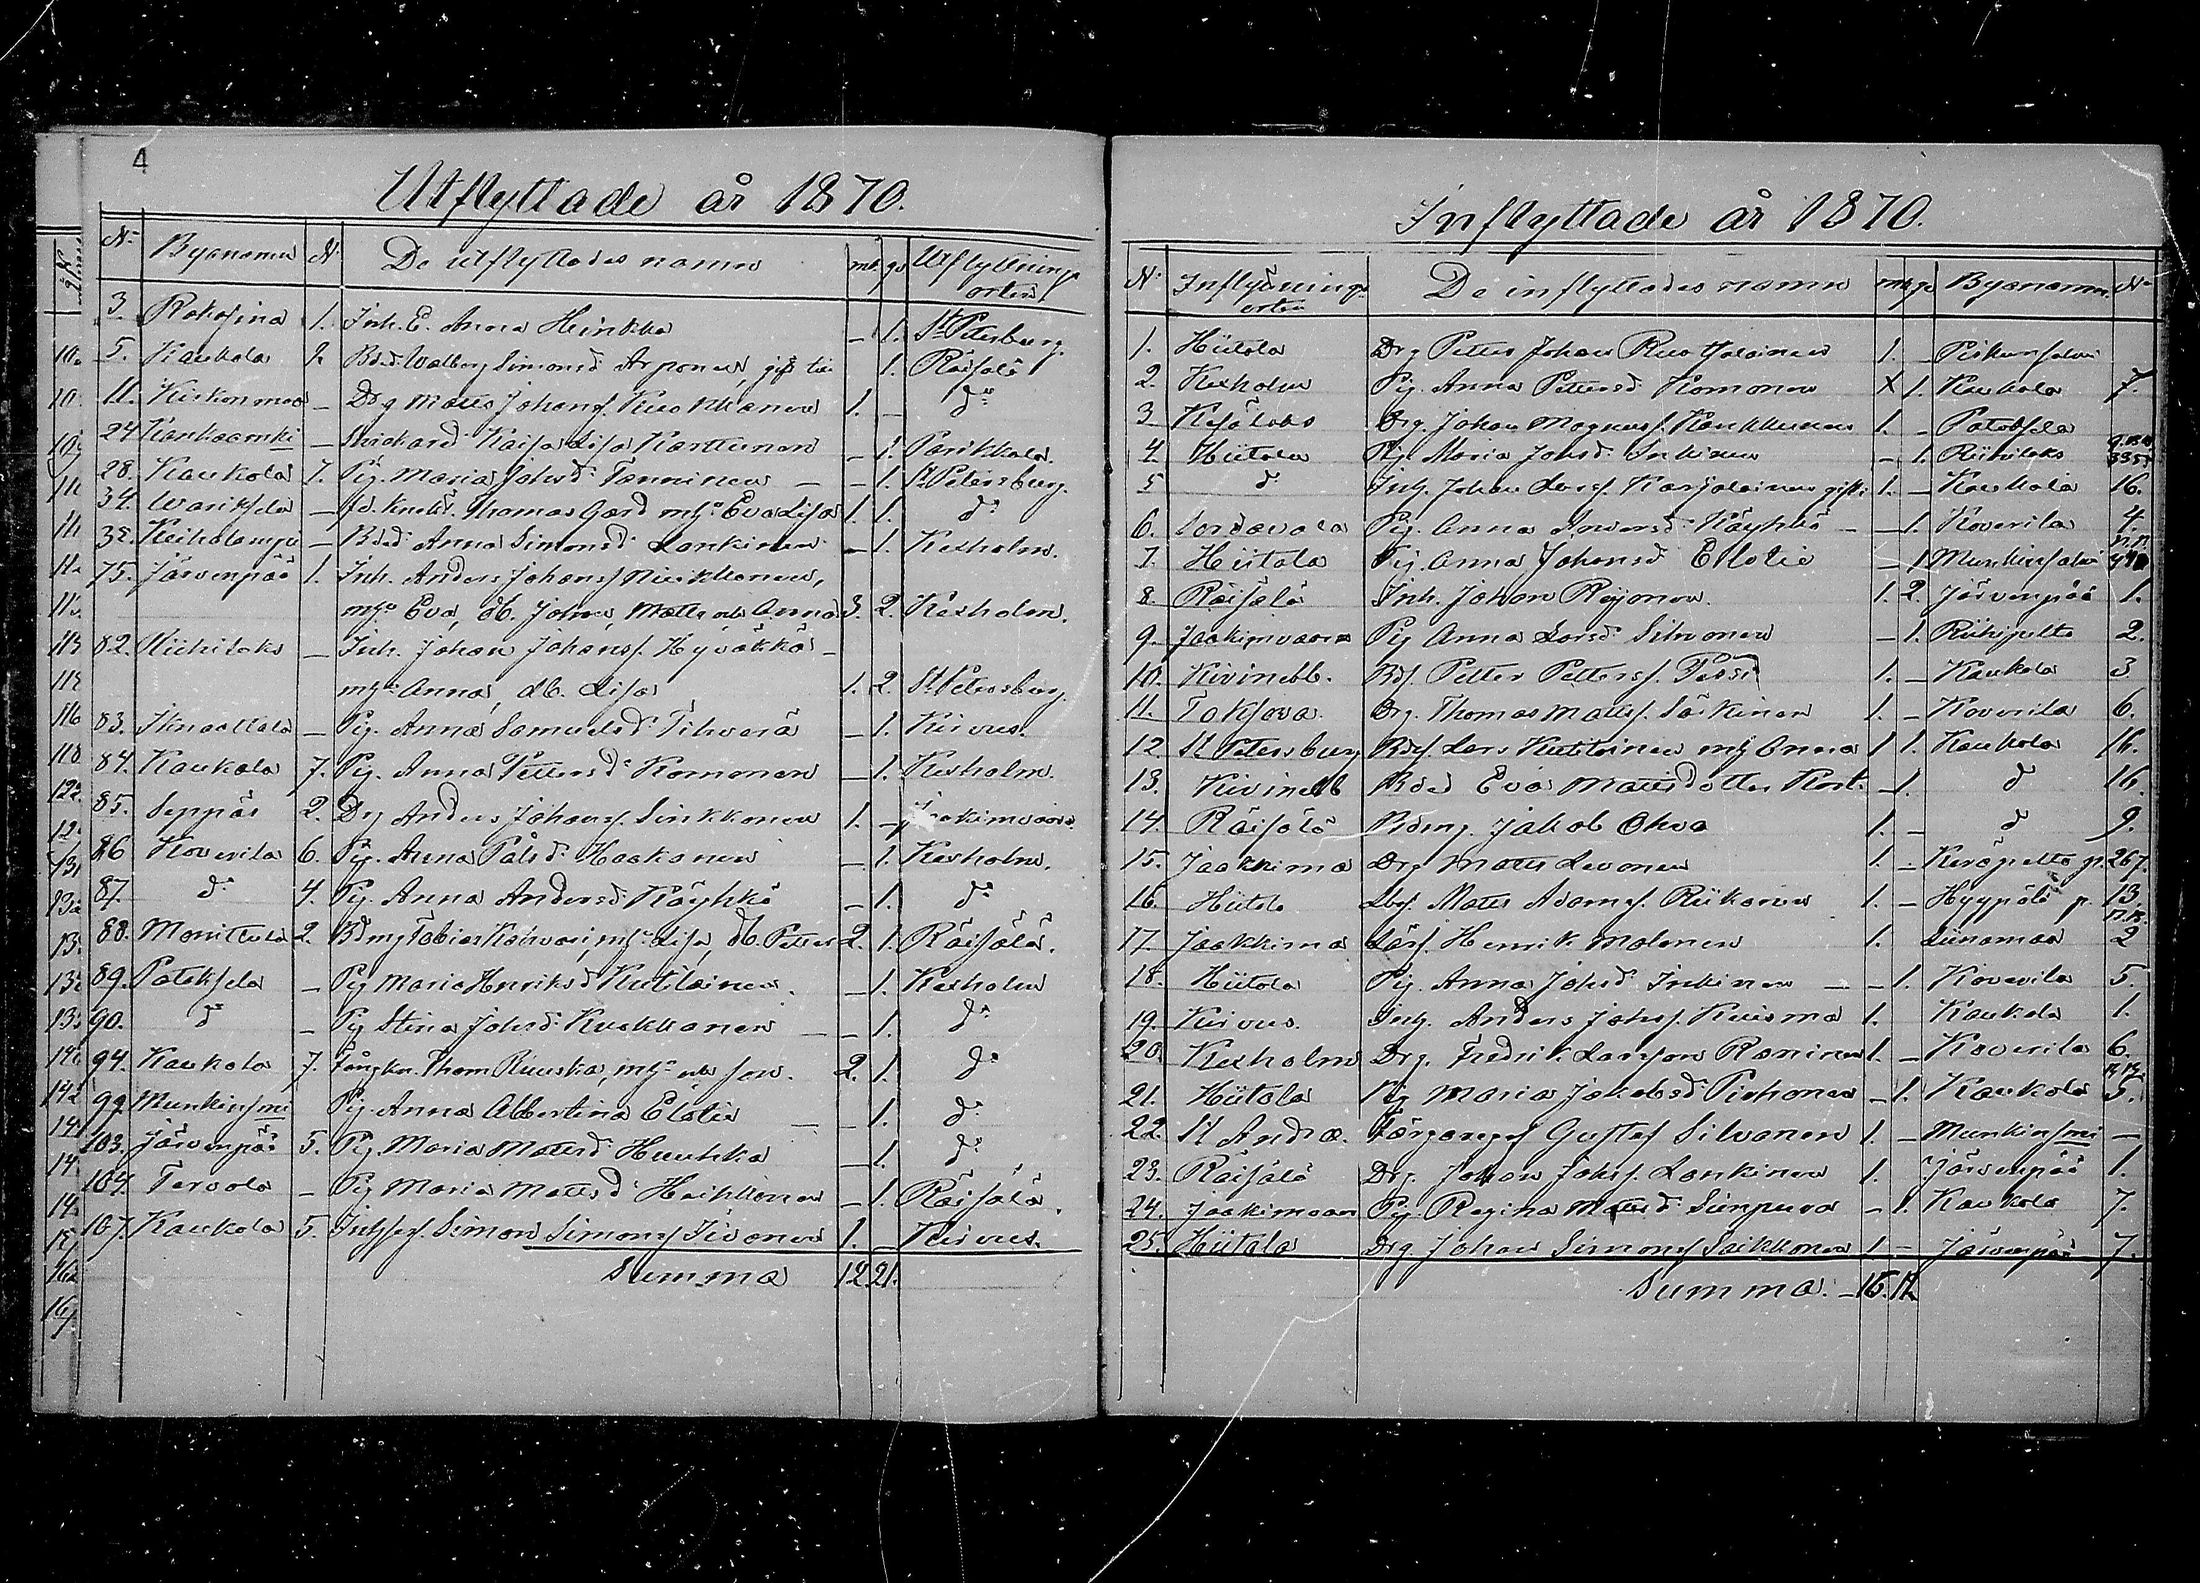 4
Utflyttade år 1870.
No Byanamn No De utflyttades namn mk. qv. Utflyttnings orten
3. Kokosina 1. Inh. E. Anna Heinkka – 1. St Petersburg.
5. Kaukola 2 Bdsd. Walborg Simonsd. Arponen, gift 1. Räisälä
11. Kiskonmaa – Drg Matts Johans. Kuokkanen 1. – do
24 Kankaamki – Kaisa Lisa Karttunen – 1. Parikkala.
28. Kaukola 7. Pig. Maria Johsd. Tanninen – – 1. St Petersburg.
34. Warikselä – fd. Knekt. Thomas Gard mh: Eva Lisa 1. 1. do
38. – Bdsd Anna Simonsd. Lankinen – 1. Kexholm.
75. Järvenpää 1. Inh. Anders Johans. Kuokkanen,
mh: Eva, db. Johan, Matts och Anna 3. 2. Kexholm.
82. Riihilaks – Inh. Johan Johans. Hyväkkä –
mh: Anna, db. Lisa 1. 2. St Petersburg.
83. Iknaattala – Pig. Anna Samuelsd. Tihverä – 1. Kirvus.
84. Kaukola 7. Pig. Anna Pettersd. Komonen – 1. Kexholm.
85. Seppäs 2. Drg Anders Johans. Sinkkonen 1. – Jaakimvaara.
86 Koverila 6. Pig. Anna Pålsd. Haakanen – 1. Kexholm.
87. do 4. Pig. Anna Andersd. Käyhkö – 1. do
88. Monittula 2. Bdmg Tobias Kohvari, mh: Lisa, db. Petter 2. 1. Räisälä.
89. Patokselä – Pig Maria Henriksd. Kutilainen. – 1. Kexholm
90. do – Pig Stina Johsd. Kuokkanen – – 1. do
94. Kaukola 7. Fångkn. Thom Ruuska, mh: och son. 2. 1. do
99. Munkinsmi Pig. Anna Albertina Elolie – – 1. do
103. Järvenpää 5. Pig. Maria Mattsd. Huuhka – 1. do
104. Tervola – Pig Maria Mattsd. Heikkonen – 1. Räisälä.
107. Kaukola 5. Simon Simons. Sivonen 1. – Kirvus.
Summa 12 21.
Inflyttade år 1870.
No Inflyttnings orten De inflyttades namn mk qv Byanamn No
1. Hiitola Drg Petter Johan Ruotsalainen 1. –
2. Kexholm Pig. Anna Pettersd. Komonen X 1. Kaukola 7.
3 Kesälaks Drg. Johan Magnus. Kankkunen 1. – Patokselä
4. Hiitola Pig. Maria Johsd. Inkinen – 1. Riihilaks
5 d Inh. Johan Larss. Karjalainen gift 1. – Kaukola 16.
6. Sordavala Pig. Anna Andersd. Käyhkö – – 1. Koverila 4.
7. Hiitola Pig. Anna Johansd Elolie – 1 Munkinsalmi
8. Räisälä Inh. Johan Reijonen. 1. 2. Järvenpää 1.
9. Jaakimvaara Pig Anna Larsd. Silvonen – 1. Riihipelto 2.
10. Kivinebb. Bds. Petter Petterss. Pessi 1. – Kaukola 3
11. Toksova. Drg. Thomas Matts. Särkinen 1. – Koverila 6.
12 St Petersburg Bds. Lars Kutilainen mh Anna 1 1. Kaukola 16.
13. Kivinebb Bdsd Eva Mattsdotter – 1. d 16.
14. Räisälä Bdmg. Jakob Ohva 1. – d 9.
15. Jaakkima Drg Matts Levonen 1. – Keräpelto gr. 267.
16. Hiitola Matts Adams. Riikonen 1. – Hyypölä p. 13.
17. Jaakkima Henrik Malinen 1. Liinamaa 2
18. Hiitola Pig. Anna Johsd. Inkinen – – 1. Koverila 5.
19. Kirvus. Inh. Anders Johss. Kuisma 1. Kaukola 1.
20. Kexholm Drg. Fredrik Larsson Roninen 1. – Koverila 6.
21. Hiitola Pig Maria Jakobsd. Pirhonen – 1. Kaukola 5.
22. St Andræ. Gustaf Silvonen 1. – Munkinsmi –
23. Räisälä Drg. Johan Johss. Lankinen 1. Järvenpää 1.
24. Jaakimvaara Pig. Regina Mattsd. Simpura – 1. Kaukola 7.
25. Hiitola Drg Johan Simons. Saikkonen 1 – Järvenpää 7.
Summa. – 15. 12.